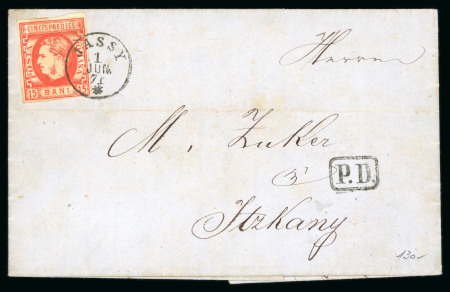 CINCISPREDECE
POSTA
15 BANI
JASSY
1
JUN.
71
Herrn
M. Zuker
P.D.
Itzkany
130